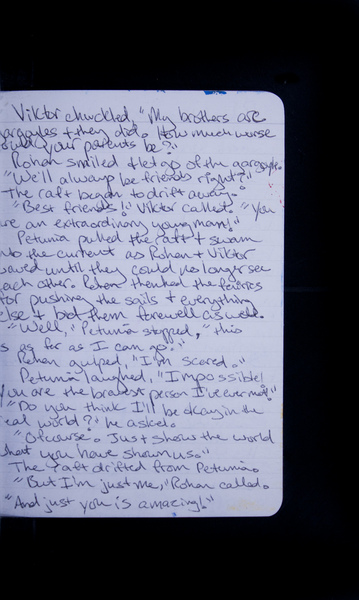 Viktor chuckled, "My brothers are
gargoyles + they did. How much worse
could your parents be?"
Rohan smiled + let go of the gargoyle.
"We'll always be friends right?"
The raft began to drift away.
"Best friends!" Viktor called. "You
are an extraordinary young man!"
Petunia pulled the raft + swam
into the current as Rohan + Viktor
waved until they could no longer see
each other. Rohan thanked the fairies
for pushing the sails + everything
else + bid them farewell as well.
"Well," Petunia stopped, "this
is as far as I can go."
Rohan gulped, "I'm scared."
Petunia laughed, "Impossible!
You are the bravest person I've ever met!"
"Do you think I'll be okay in the
real world?" he asked.
"Of course. Just show the world
what you have shown us."
The raft drifted from Petunia.
"But I'm just me," Rohan called.
"And just you is amazing!"